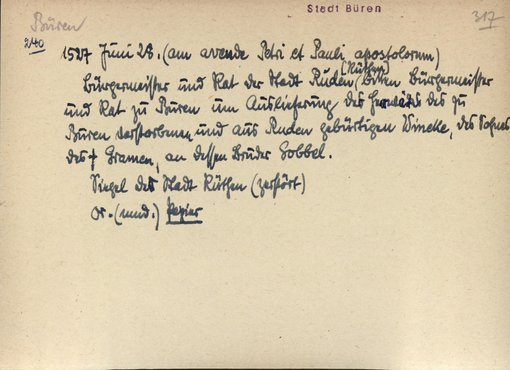 Büren
Stadt Büren
317
240
1527 Juni 28. (am avende Petri et Pauli apostolorum)
Bürgermeister und Rat der Stadt Ruden (Rüthen) bitten Bürgermeister
und Rat zu Büren um Auslieferung des Herwädes des zu
Büren verstorbenen und aus Ruden gebürtigen Wineke, des Sohnes
des † Gramen, an dessen Bruder Gobbel.
Siegel der Stadt Rüthen (zerstört)
Or. (mnd.) Papier